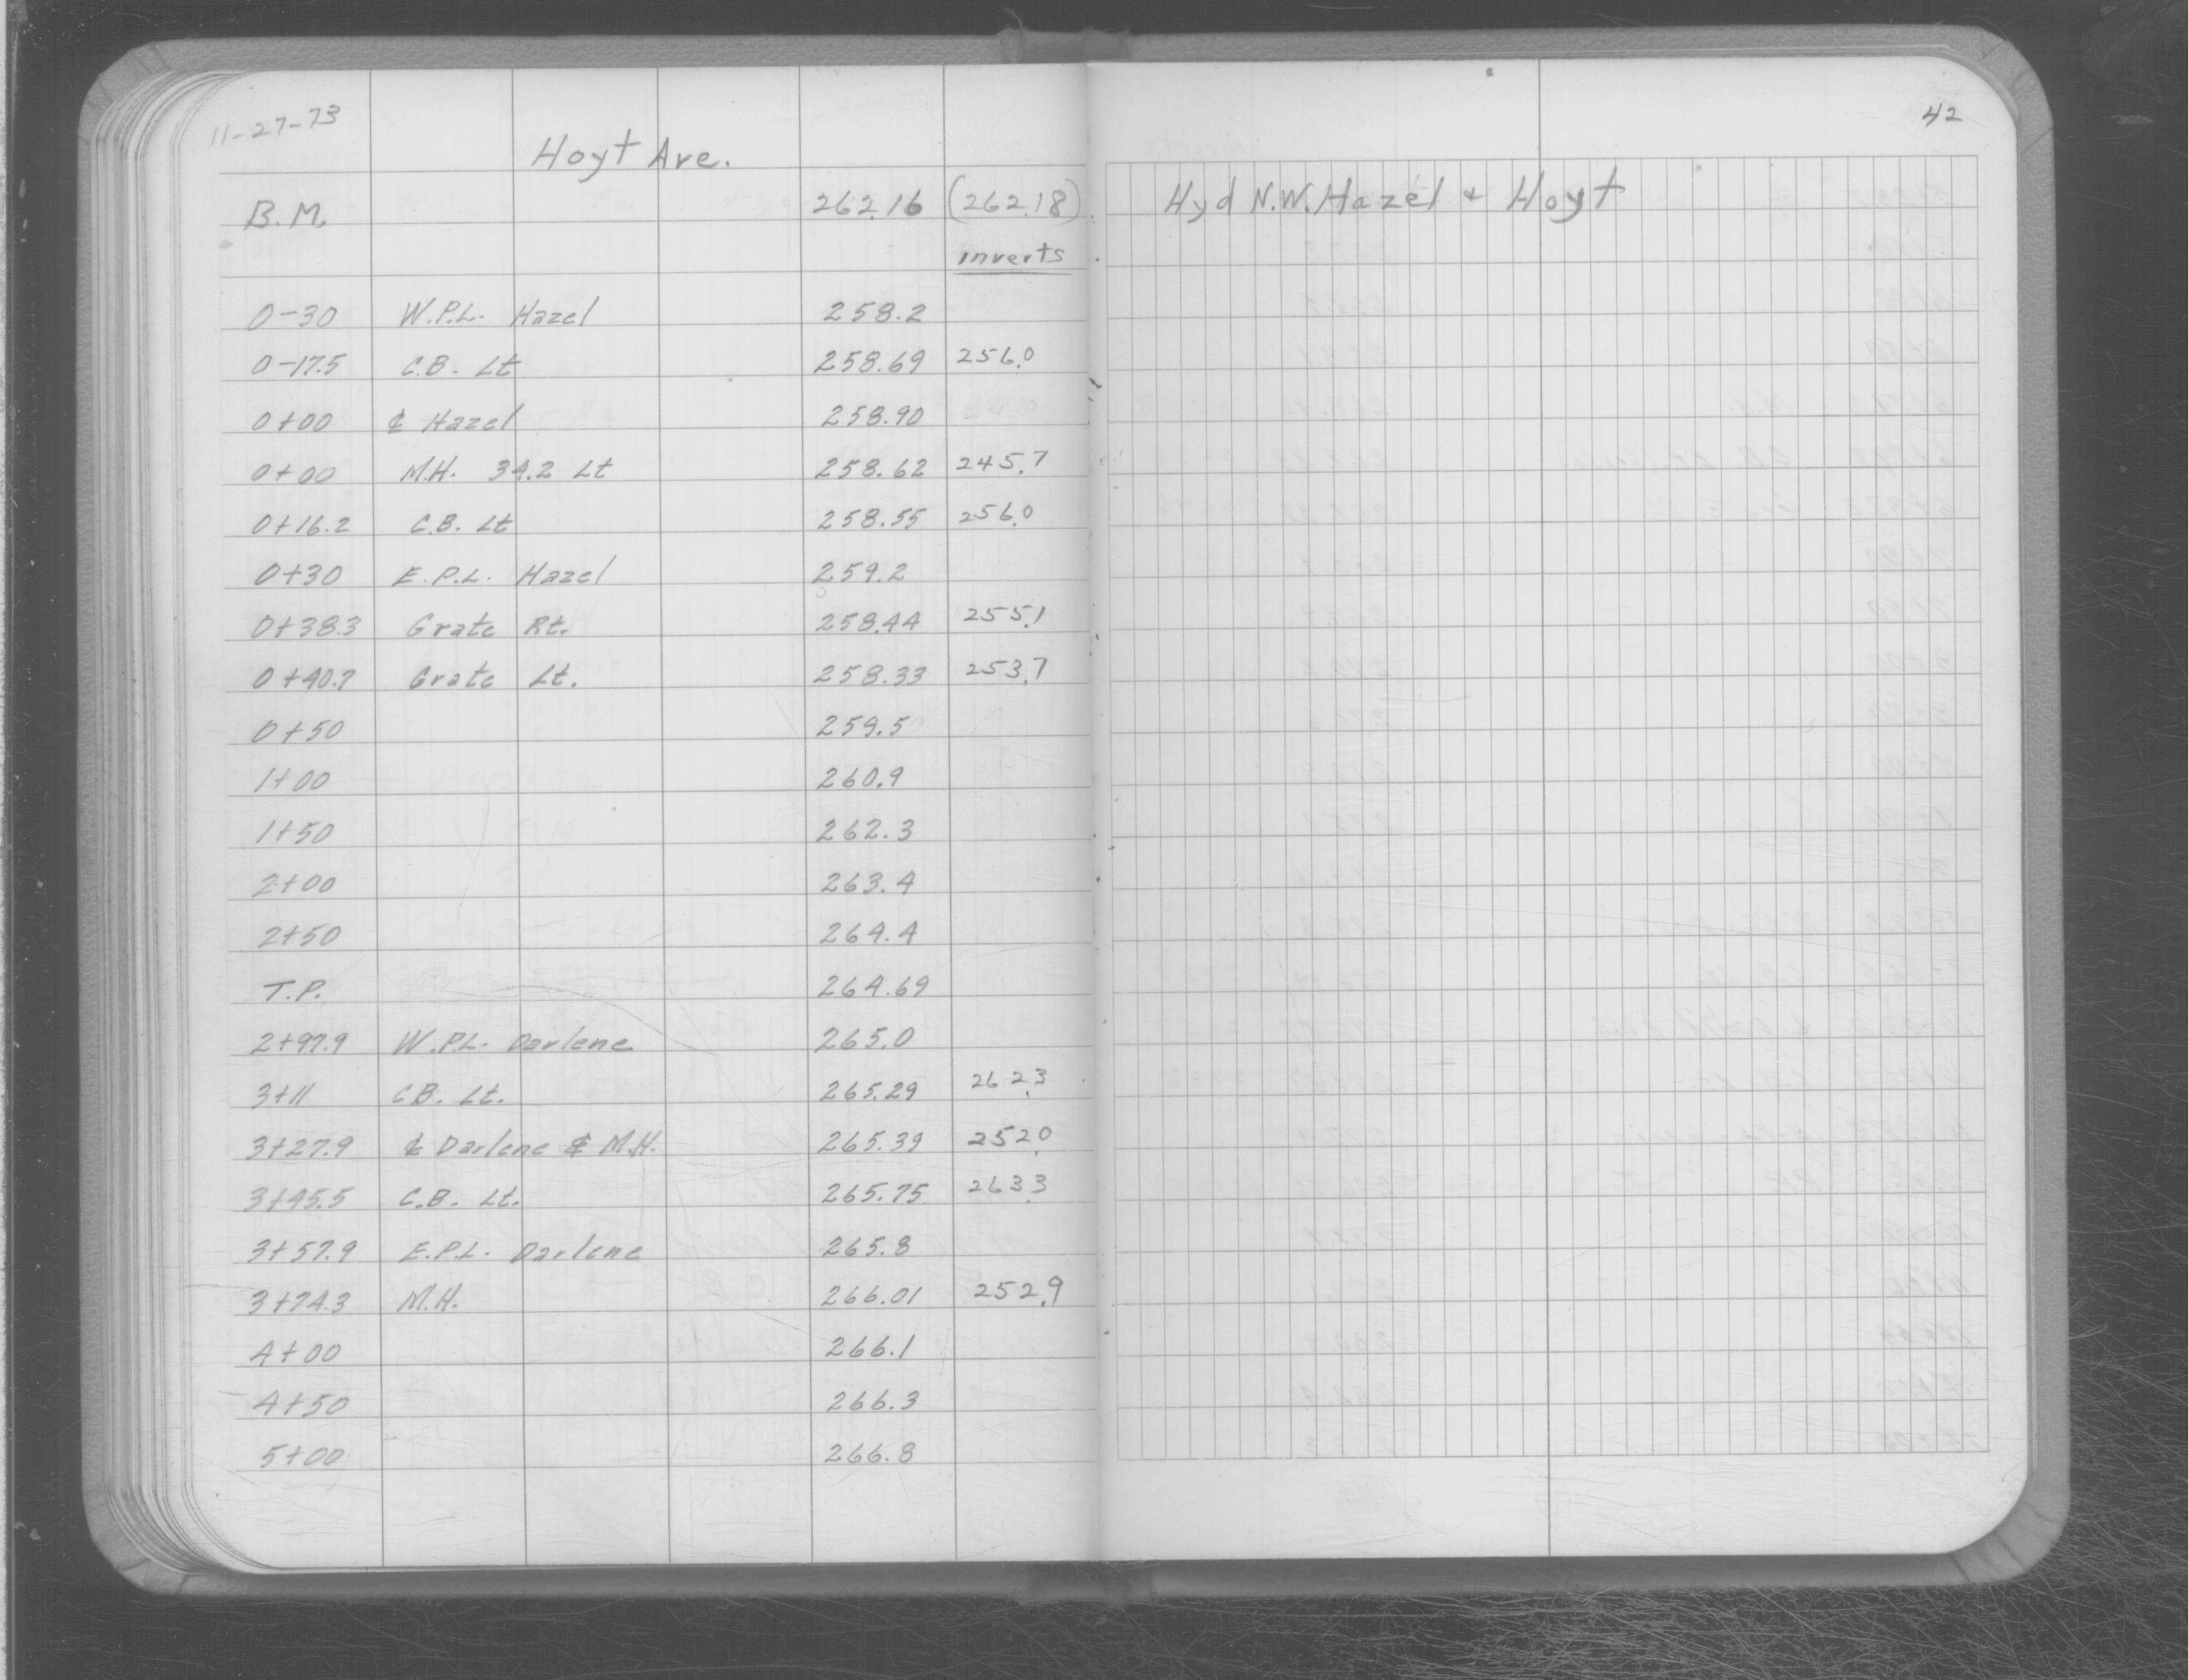 11-27-73
42
Hoyt Ave.
B.M. 262.16 (262.18) Hyd N.W. Hazel & Hoyt
inverts
0-30 W.P.L. Hazel 258.2
0-17.5 C.B. Lt 258.69 256.0
0+00 ℄ Hazel 258.90
0+00 M.H. 34.2 Lt 258.62 245.7
0+16.2 C.B. Lt 258.55 256.0
0+30 E.P.L. Hazel 259.2
0+38.3 Grate Rt. 258.44 255.1
0+40.7 Grate Lt. 258.33 253.7
0+50 259.5
1+00 260.9
1+50 262.3
2+00 263.4
2+50 264.4
T.P. 264.69
2+97.9 W.P.L. Darlene 265.0
3+11 C.B. Lt. 265.29 262.3
3+27.9 ℄ Darlene ℄ M.H. 265.39 252.0
3+45.5 C.B. Lt. 265.75 263.3
3+57.9 E.P.L. Darlene 265.8
3+74.3 M.H. 266.01 252.9
4+00 266.1
4+50 266.3
5+00 266.8